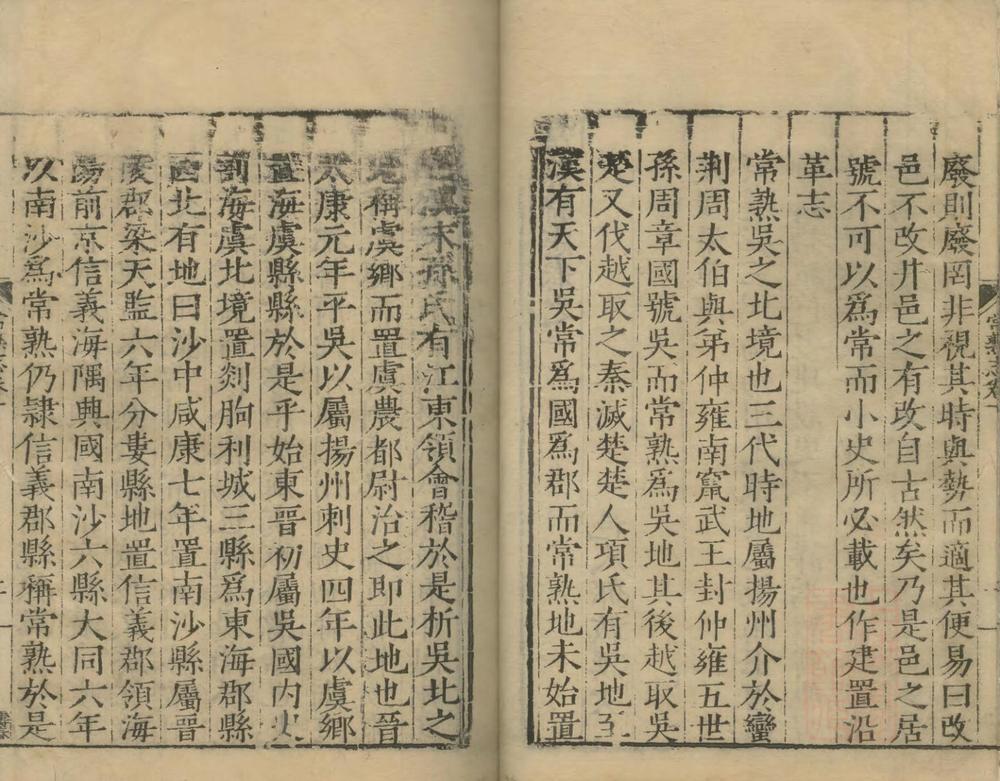 廢則廢罔非視其時與勢而適其便易曰改
邑不改井邑之有改自古然矣乃是邑之居
號不可以爲常而小史所必載也作建置沿
革志
常熟吳之北境也三代時地屬揚州介於蠻
荆周太伯與弟仲雍南竄武王封仲雍五世
孫周章國號吳而常熟爲吳地其後越取吳
楚又伐越取之秦滅楚楚人項氏有吳地至
漢有天下吳常爲國爲郡而常熟地未始置
漢末孫氏有江東領會稽於是析吳北之
地稱虞鄉而置虞農都尉治之即此地也晉
太康元年平吳以屬揚州刺史四年以虞鄉
置海虞縣縣於是乎始東晉初屬吳國内史
割海虞北境置剡朐利城三縣爲東海郡縣
西北有地曰沙中咸康七年置南沙縣屬晉
陵郡梁天監六年分婁縣地置信義郡領海
陽前京信義海隅興國南沙六縣大同六年
以南沙爲常熟仍隸信義郡縣稱常熟於是